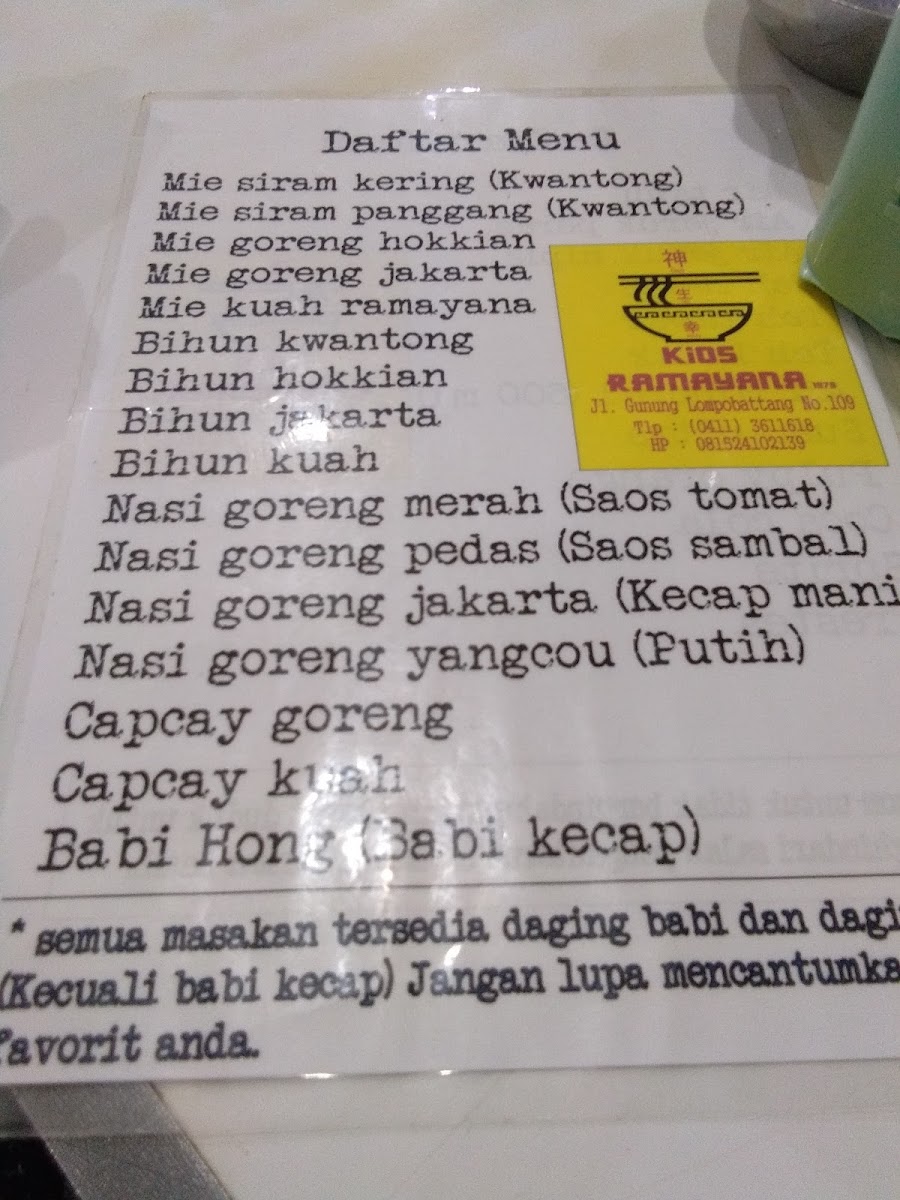 Daftar Menu
Mie siram kering (Kwantong)
Mie siram panggang (Kwantong)
Mie goreng hokkian
Mie goreng jakarta
Mie kuah ramayana
Bihun kwantong
Bihun hokkian
Bihun jakarta
Bihun kuah
神
生
幸
KiOS
RAMAYANA 1979
Jl. Gunung Lompobattang No.109
Tlp : (0411) 3611618
HP : 081524102139
Nasi goreng merah (Saos tomat)
Nasi goreng pedas (Saos sambal)
Nasi goreng jakarta (Kecap mani
Nasi goreng yangcou (Putih)
Capcay goreng
Capcay kuah
Babi Hong (Babi kecap)
* semua masakan tersedia daging babi dan dagi
(Kecuali babi kecap) Jangan lupa mencantumka
favorit anda.